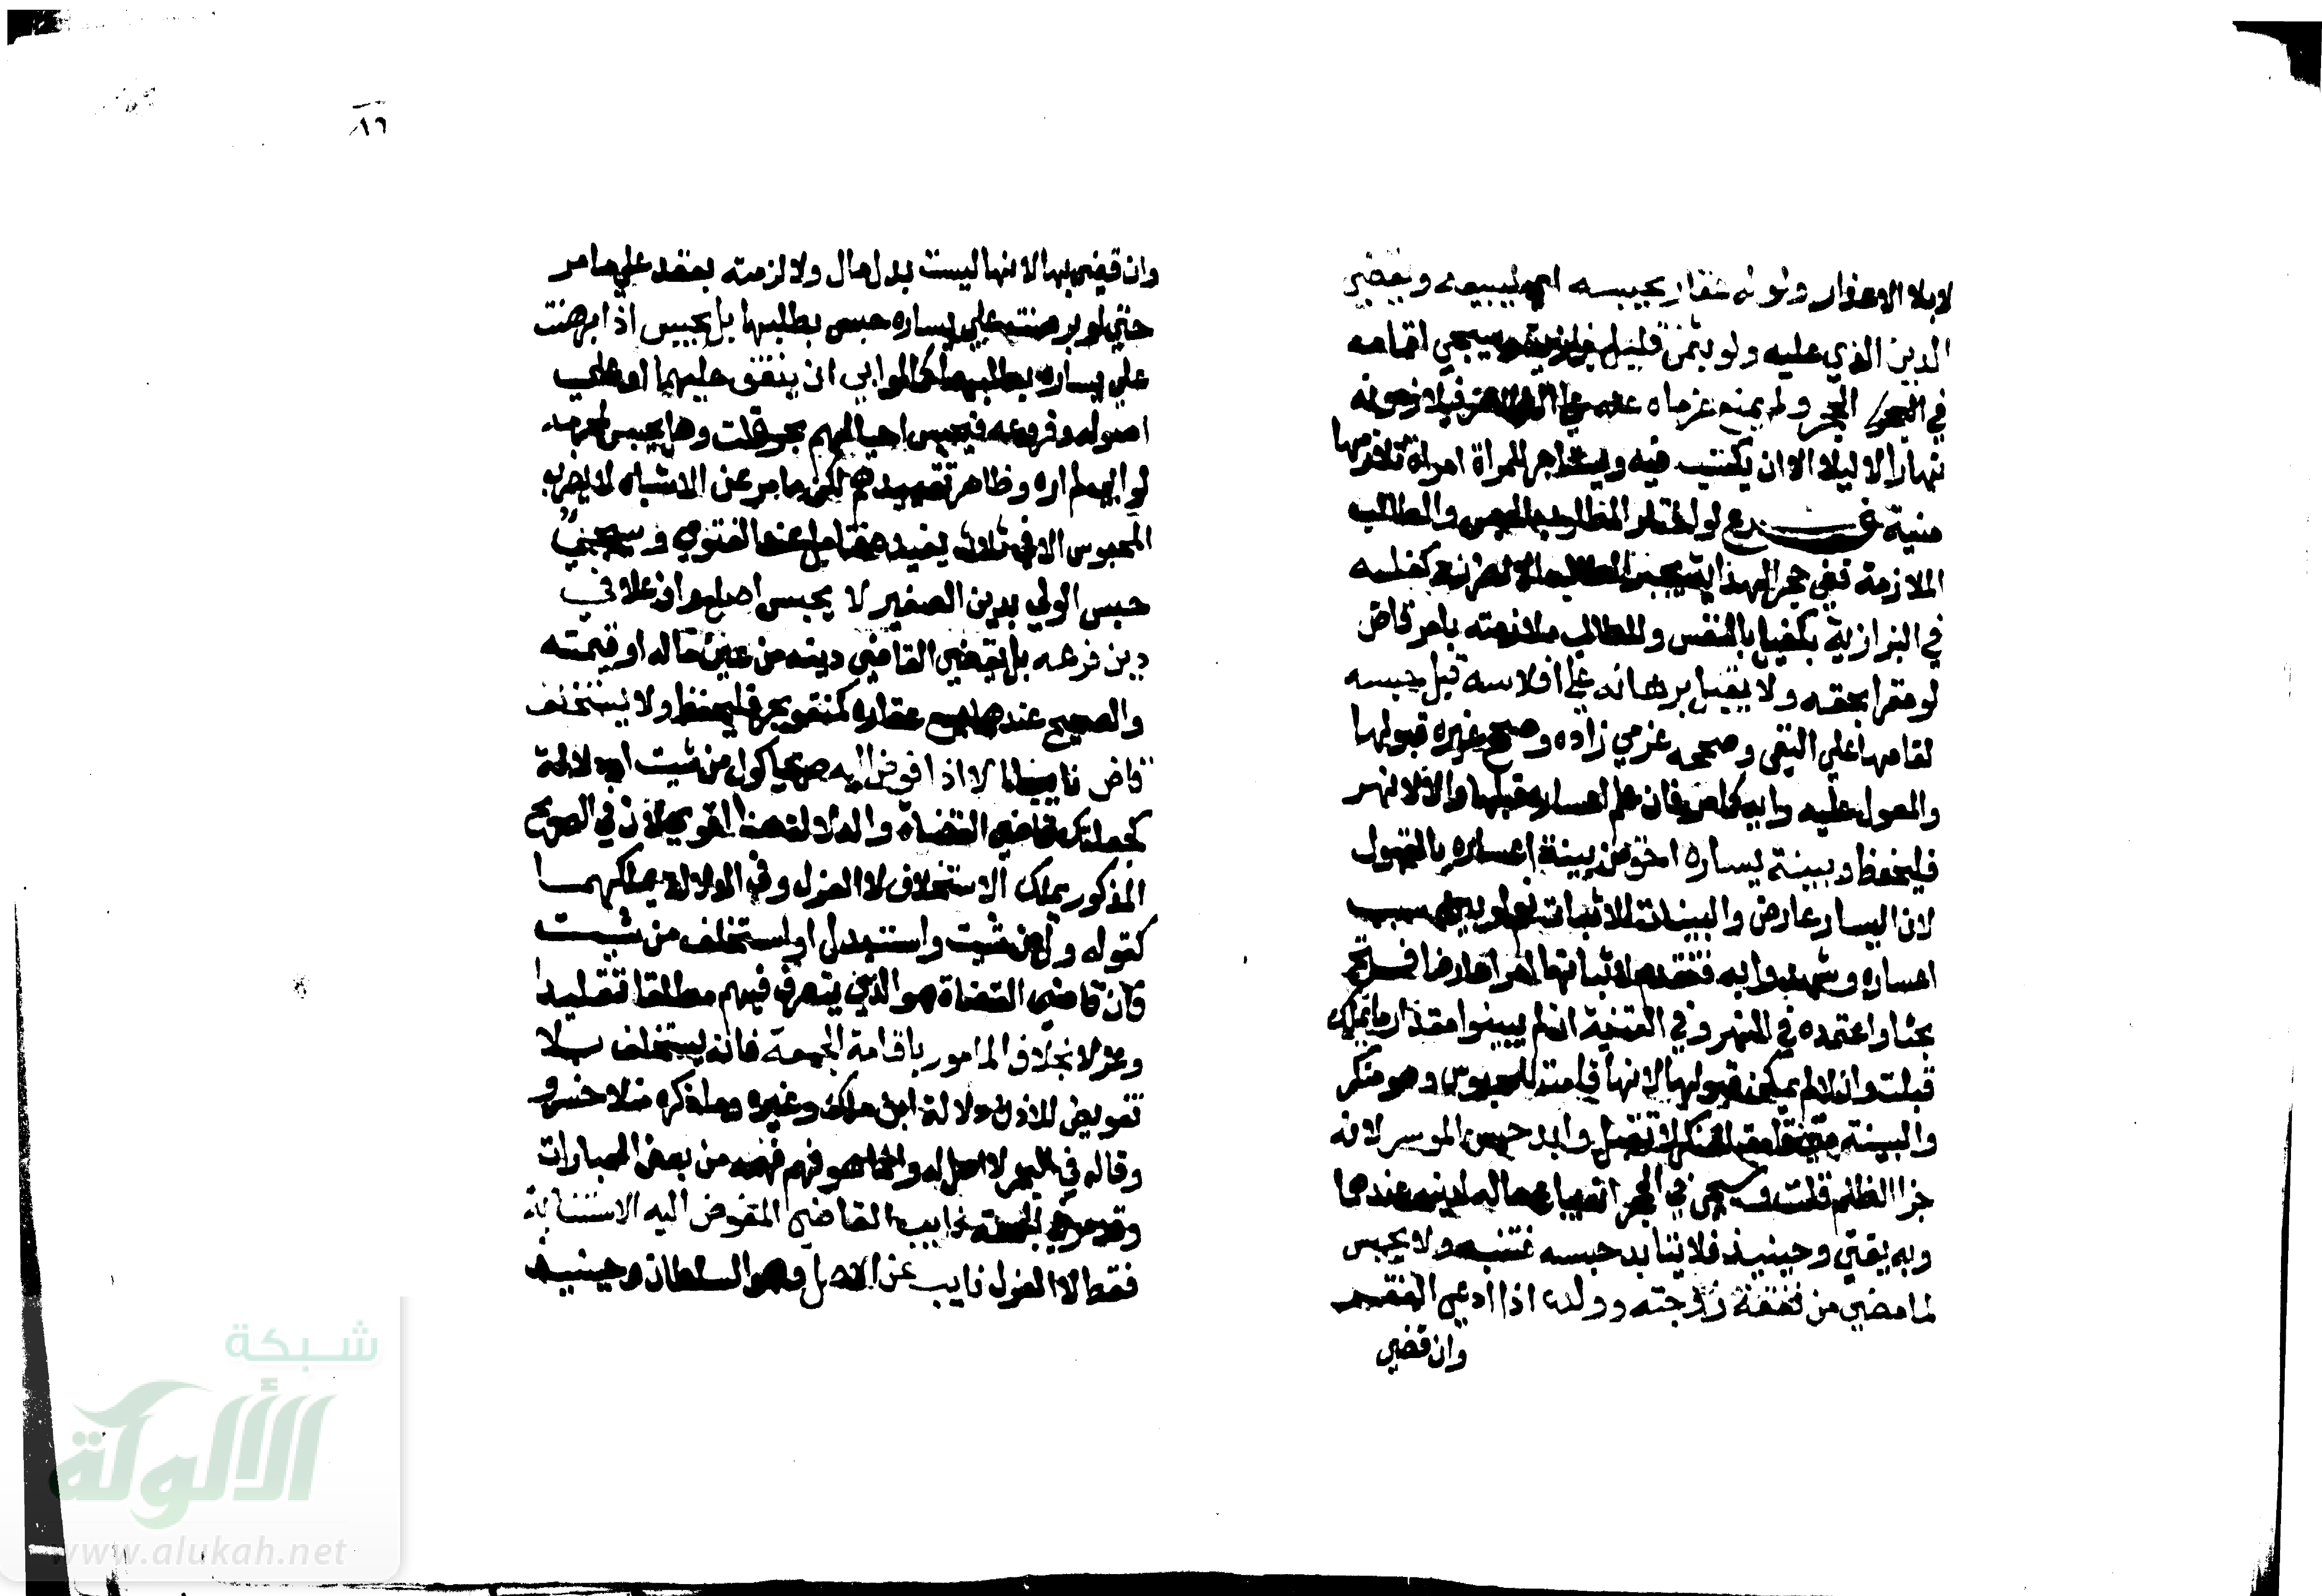 ٨٦
لابلا الاعذار ولو له عقار يحبسه اي ليبيعه ويقضي
الدين الذي عليه ولو بثمن قليل بزازية وسيجي تمامه
في الحجر ولم يمنع غرماه عنه على الظاهر فيلازمونه
نهارا لا ليلا الا ان يكتسب فيه ويستاجر للمراة امراة تلازمها
منية فرع لو اختار المطلوب الحبس والطالب
الملازمة ففي حجر الهداية يخير الطالب الا لضرر وكلفه
في البزازية بكفيل بالنفس وللطالب ملازمته بامر قاض
لو مقرا بحقه ولا يقبل برهانه علي افلاسه قبل حبسه
لقيامها علي النفي وصححه عزمي زاده وصحح غيره قبولها
والمعول عليه رايه كما مر فان علم اعساره قبلها والا لا نهر
فليحفظ وبينة يساره احق من بينة اعساره بالقبول
لان اليسار عارض والبينات للاثبات نعم لو بين سبب
اعساره وشهدوا به فتقدم لاثباتها امرا عارضا فتح
بحثا واعتمده في النهر وفي القنية ان لم يبينوا مقدار ما يملك
قبلت والا لم يمكن قبولها لانها قامت للمحبوس وهو منكر
والبينة متى قامت للمنكر لا تقبل وابد حبس الموسر لانه
جزا الظلم قلت وسيجي في الحجر انه يباع ماله لدينه عندهما
وبه يفتي وحينيذ فلا يتابد حبسه فتنبه ولا يحبس
لما مضي من نفقة زوجته وولده اذا ادعي الفقر
وان قضي
وان قضي بها لانها ليست بدل مال ولا لزمته بعقد علي ما مر
حتي لو برهنت علي يساره حبس بطلبها بل يحبس اذا برهنت
علي يساره بطلبها كما لو ابي ان ينفق عليهما او علي
اصوله وفروعه فيحبس احيا لهم بحر قلت وهل يحبس لمحرمه
لو ابي لم اره وظاهر تقييدهم لكن ما مر عن الاشباه لا يضرب
المحبوس الا في ثلاث يفيد فتامل عند الفتوي وسيجي
حبس الولي بدين الصغير لا يحبس اصل وان علا في
دين فرعه بل يقضي القاضي دينه من عين ماله او قيمته
والصحيح عندهما بيع عقاره كمنقوله بحر فليحفظ ولا يستخلف
قاض نايبا الا اذا فوض اليه صريحا كول من شيت او دلالة
كجعلتك قاضي القضاة والدلالة هنا اقوي لان في الصريح
المذكور يملك الاستخلاف لا العزل وفي الدلالة يملكهما
كقوله ول من شيت واستبدل او استخلف من شيت
فان قاضي القضاة هو الذي يتصرف فيهم مطلقا تقليدا
وعزلا بخلاف المامور باقامة الجمعة فانه يستخلف بلا
تفويض للاذن دلالة ابن ملك وغيره وما ذكره منلا خسرو
وقاله في البحر لا اصل له وانما هو فهم فهمه من بعض العبارات
وقد مر في الجمعة نايب القاضي المفوض اليه الاستنابة
فقط لا العزل نايب عن الاصل وهو السلطان وحينيذ
شبكة
الألوكة
www.alukah.net